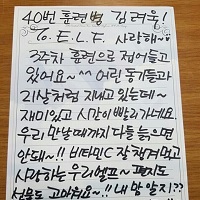 40번 훈련병 김려욱!
To. E.L.F. 사랑해~
3주차 훈련으로 접어들고
있어요~ ^^ 어린 동기들과
21살처럼 지내고 있는데~
재미있고 시간이 빨리가네요.
우리 만날때까지 다들 늙으면
안돼~!! 비타민C 잘 챙겨먹고
사랑하는 우리엘프~ 편지도
선물도 고마워요~!! 내 맘 알지??